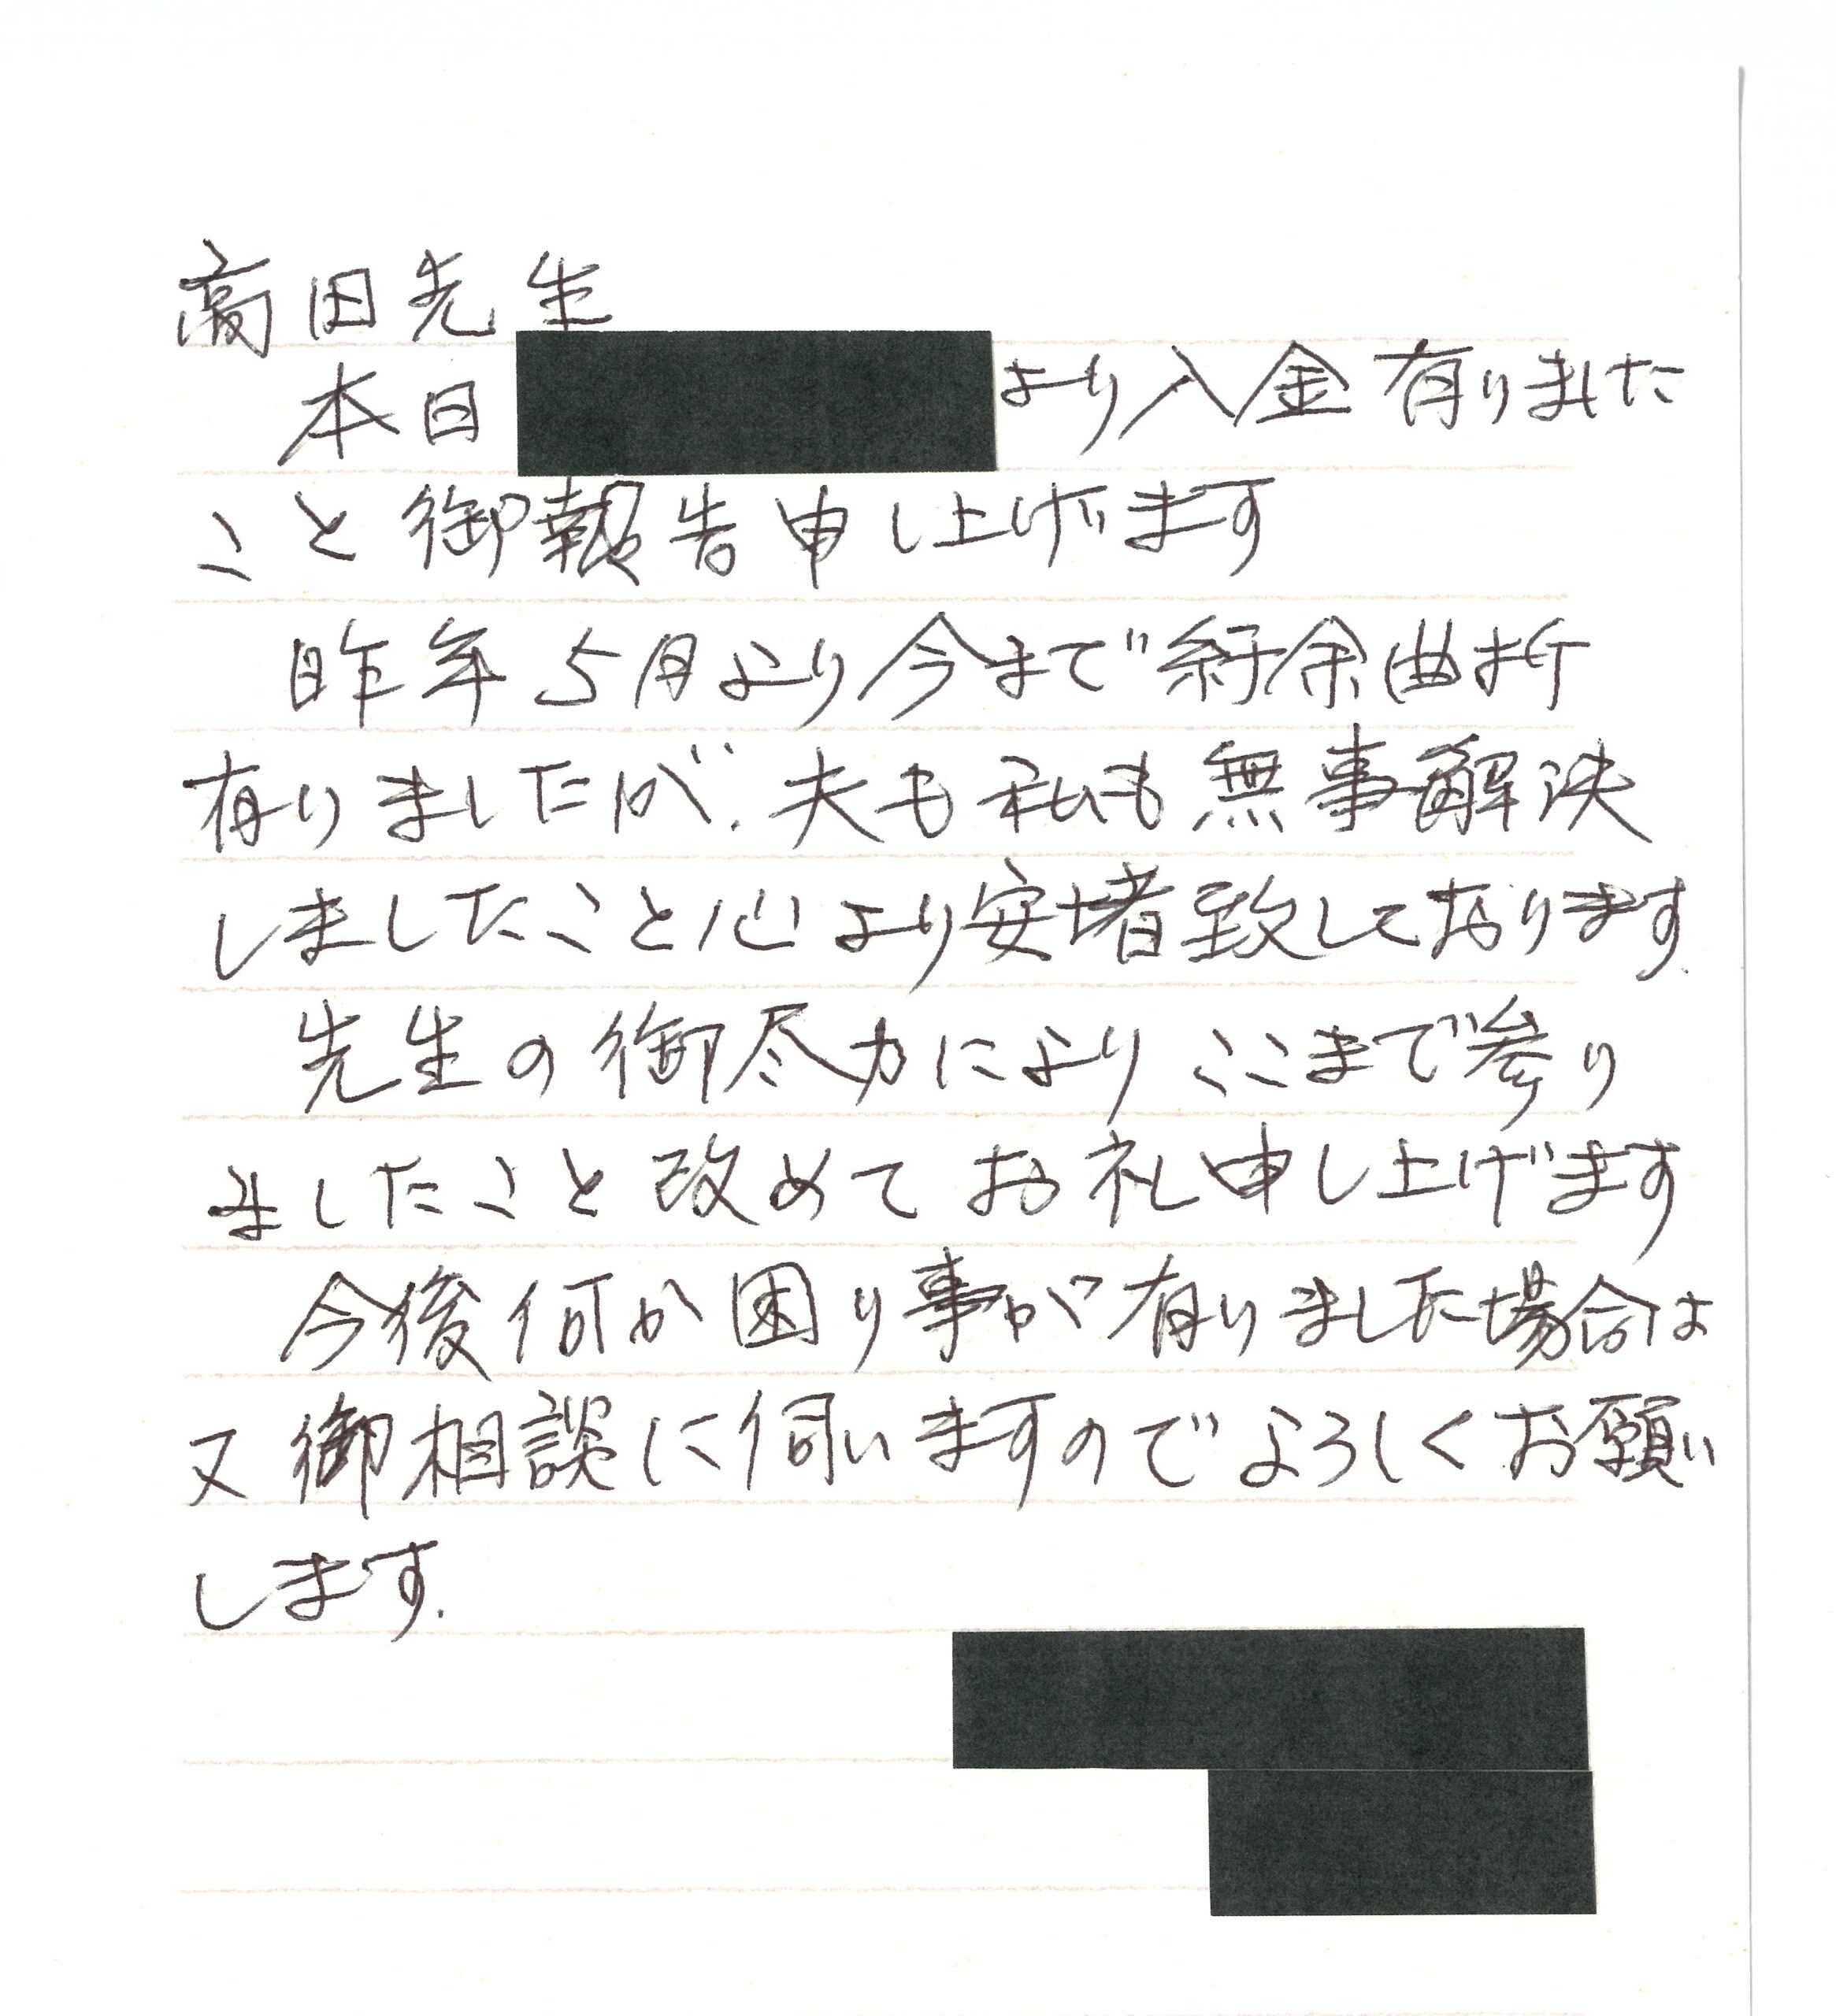 高田先生
本日
より入金有りました
こと御報告申し上げます
昨年5月より今まで紆余曲折
有りましたが、夫も私も無事解決
しましたこと心より安堵致しております.
先生の御尽力によりここまで参り
ましたこと改めてお礼申し上げます
今後何か困り事が有りました場合は
又御相談に伺いますのでよろしくお願い
します.